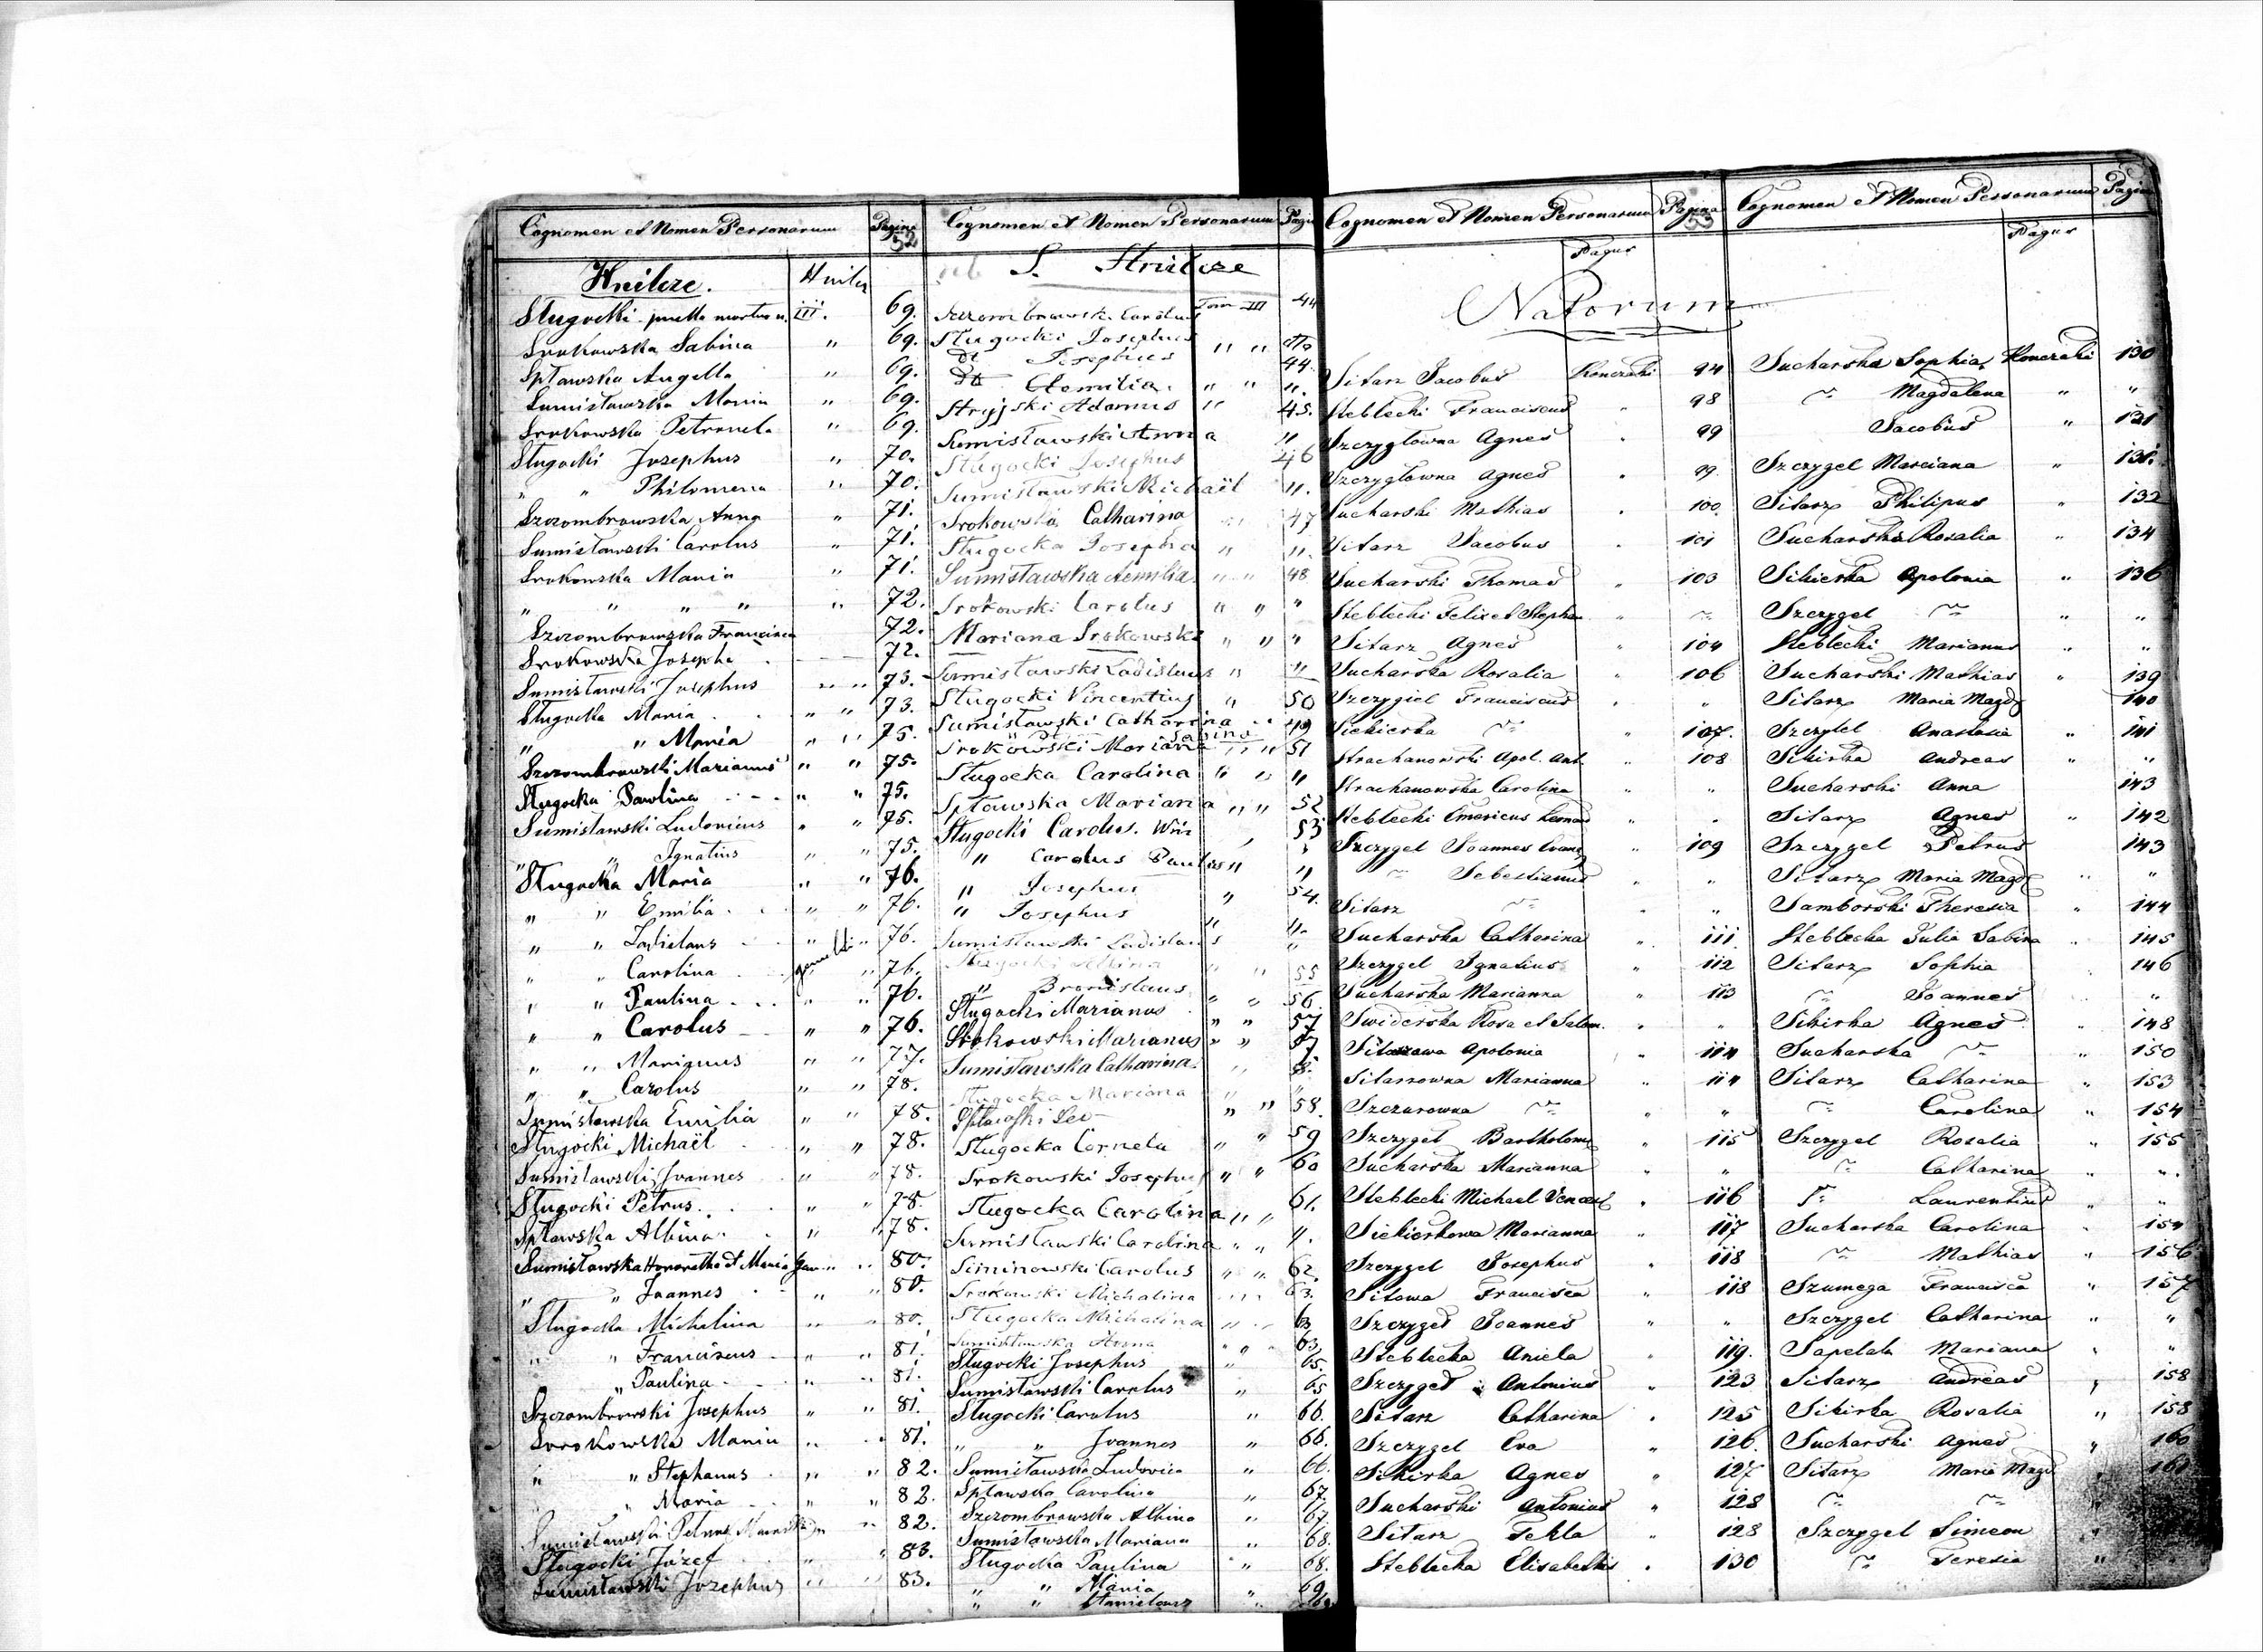 Cognomen et Nomen Personarum Pagina 52
Hnilcze. Hnilcz
Sługocki puella mortua n. III. 69.
Srokowska Sabina " 69.
Spławska Angella " 69.
Sumisławska Maria " 69.
Srokowska Petronela " 69.
Sługocki Josephus " 70.
" " Philomena " 70.
Szczombrowska Anna " 71.
Sumisławski Carolus " 71.
Srokowska Maria " 71.
" " " " " 72.
Szczombrowska Francisca 72.
Srokowska Josepha 72.
Sumisławski Josephus " " 73.
Sługocka Maria " " 73.
" " Maria " " 75.
Szczombrowski Marianus " " 75.
Sługocka Pawlina " " 75.
Sumisławski Ludovicus " " 75.
" " Ignatius " " 75.
Sługocka Maria " " 76.
" " Emilia " " 76.
" " Ladislaus " " 76.
" " Carolina " 76.
" " Paulina " " 76.
" " Carolus " " 76.
" " Marianus " " 77.
" " Carolus " " 78.
Sumisławska Emilia " " 78.
Sługocki Michaël " " 78.
Sumisławski Joannes " " 78.
Sługocki Petrus " " 78.
Spławska Albina " " 78.
Sumisławska Honoratha et Maria gem " 80.
" " Joannes " " 80.
Sługocka Michalina " " 80.
" " Franciscus " " 81.
" Paulina " " 81.
Szczombrowski Josephus " " 81.
Srokowska Maria " " 81.
" " Stephanus " " 82.
" " Maria " " 82.
Sumisławski Petrus " 82.
Sługocki Józef " " 83.
Sumisławski Josephus " " 83.
Cognomen et Nomen Personarum Pagin
S. Hnilcze
Szczombrowski Carolus Tom III 44
Sługocki Josephus " " dto
dt Josephus 44.
dt Aemilia. " " ".
Stryjski Adamus " 45.
Sumisławski Anna "
Sługocki Josephus 46
Sumisławski Michaël ".
Srokowska Catharina " 47
Sługocka Josepha " ".
Sumisławska Aemilia " " 48
Srokowski Carolus " " "
Mariana Srokowska " " "
Sumisławski Ladislaus " "
Sługocki Vincentius " 50
Sumisławski Catharina " 49
Srokowski Mariana Sabina " " 51
Sługocka Carolina " " "
Spławska Mariana " " 52
Sługocki Carolus. 53
" Carolus Paulus " "
" Josephus " 54.
" Josephus " ".
Sumisławski Ladislaus "
Sługocki Albina " " 55
" Bronislaus " " 56.
Sługocki Marianus " " 57
Srokowski Marianus " " 57
Sumisławska Catharina "
Sługocka Mariana " " 58.
Spławski Leo
Sługocka Cornela " " 59
Srokowski Josephus " " 60
Sługocka Carolina " " 61.
Sumisławski Carolina " " ".
Siminowski Carolus " " 62.
Srokowski Michalina " " 63.
Sługocka Michalina " " 63
Sumisławska Anna " " 63
Sługocki Josephus " 65.
Sumisławski Carolus " 65
Sługocki Carolus " 66.
" " Joannes " 66.
Sumisławska Ludovica " 66.
Spławska Carolina " 67.
Szczombrowska Albina " 67.
Sumisławska Mariana " 68.
Sługocka Paulina " 68.
" " Maria " 69
" " Stanislaus " 69.
Cognomen et Nomen Personarum Pagina 53
Pagus
Natorum
Sitarz Jacobus Konczaki 94
Steblecki Franciscus " 98
Szczygłowna Agnes " 99
Szczygłowna Agnes " 99.
Sucharski Mathias " 100
Sitarz Jacobus " 101
Sucharski Thomas " 103
Steblecki Felix et Stephan " "
Sitarz Agnes " 104
Sucharska Rosalia " 106
Szczygiel Franciscus " "
Siekierka " 107.
Strachanowski Apol. Ant. " 108
Strachanowska Carolina " "
Steblecki Emericus Leonard " "
Szczygel Joannes Evang " 109
" Sebestianus " "
Sitarz " " "
Sucharska Catharina " 111
Szczygel Ignatius " 112
Sucharska Marianna " 113
Swiderska Rosa et Salom. " "
Sitarzowa Apolonia " 114
Sitarzowna Marianna " 114
Szczurowna " " "
Szczygel Bartholome " 115
Sucharska Marianna " "
Steblecki Michael Vencesl " 116
Siekierkowa Marianna " 117
Szczygel Josephus " 118
Sitowa Francisca " 118
Szczygel Joannes " "
Steblecka Aniela " 119.
Szczygel Antonius " 123
Sitarz Catharina " 125
Szczygel Eva " 126.
Sikirka Agnes " 127
Sucharski Antonius " 128
Sitarz Tekla " 128
Steblecka Elisabetha " 130
Cognomen et Nomen Personarum Pagina
Pagus
Sucharska Sophia Konczaki 130
" Magdalena " "
Jacobus " 131
Szczygel Marciana " 131.
Sitarz Philipus " 132
Sucharska Rosalia " 134
Sikierka Apolonia " 136
Szczygel " " "
Steblecki Marianus " "
Sucharski Mathias " 139
Sitarz Maria Magd 140
Szczygel Anastasia " 141
Sikirka Andreas " "
Sucharski Anna 143
Sitarz Agnes " 142
Szczygel Petrus 143
Sitarz Maria Magd " "
Samborski Theresia " 144
Steblecka Julia Sabina " 145
Sitarz Sophia " 146
" Joannes "
Sikirka Agnes 148
Sucharska " " 150
Sitarz Catharina " 153
" Carolina " 154
Szczygel Rosalia " 155
" Catharina " "
" Laurentius " "
Sucharska Carolina " 154
" Mathias " 156
Szumega Francisca " 157
Szczygel Catharina " "
Sapelak Mariana " "
Sitarz Andreas " 158
Sikirka Rosalia " 158
Sucharski Agnes " 160
Sitarz Maria Magd " 161
" "
Szczygel Simeon "
" Teresia "